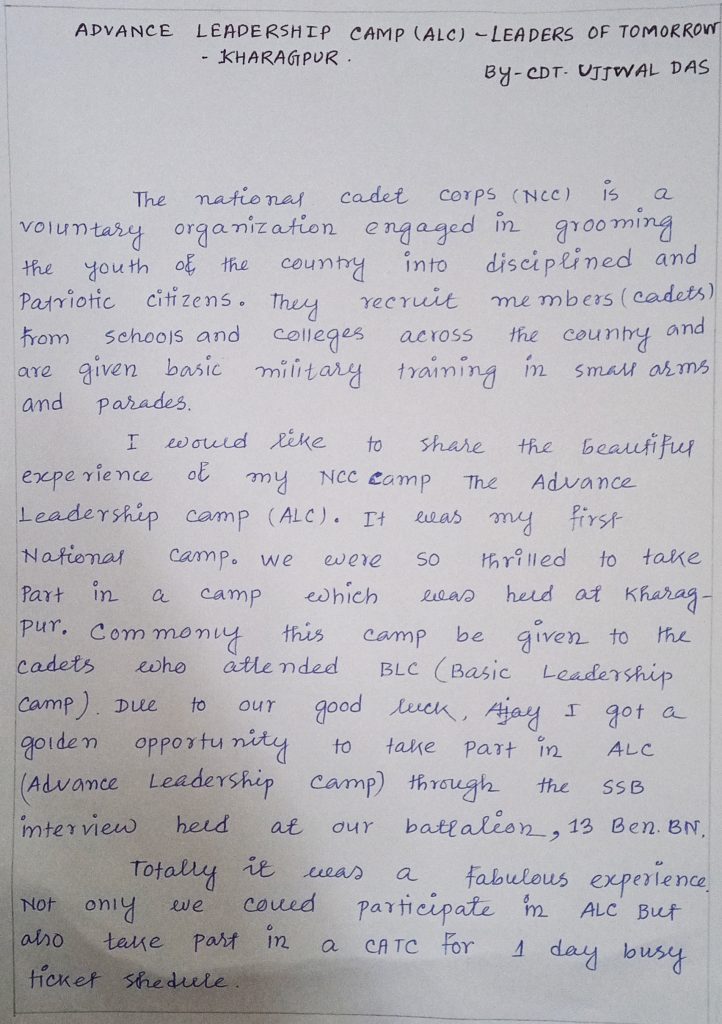 ADVANCE LEADERSHIP CAMP (ALC) - LEADERS OF TOMORROW
- KHARAGPUR.
By - CDT. UJJWAL DAS
The national cadet corps (NCC) is a
voluntary organization engaged in grooming
the youth of the country into disciplined and
Patriotic citizens. They recruit members (cadets)
from schools and colleges across the country and
are given basic military training in small arms
and parades.
I would like to share the beautiful
experience of my NCC camp The Advance
Leadership camp (ALC). It was my first
National camp. we were so thrilled to take
Part in a camp which was held at Kharag-
pur. Commonly this camp be given to the
cadets who attended BLC (Basic Leadership
camp). Due to our good luck, Ajay I got a
golden opportunity to take part in ALC
(Advance Leadership Camp) through the SSB
interview held at our battalion, 13 Ben. BN.
Totally it was a fabulous experience.
Not only we could participate in ALC But
also take part in a CATC for 1 day busy
ticket shedule.